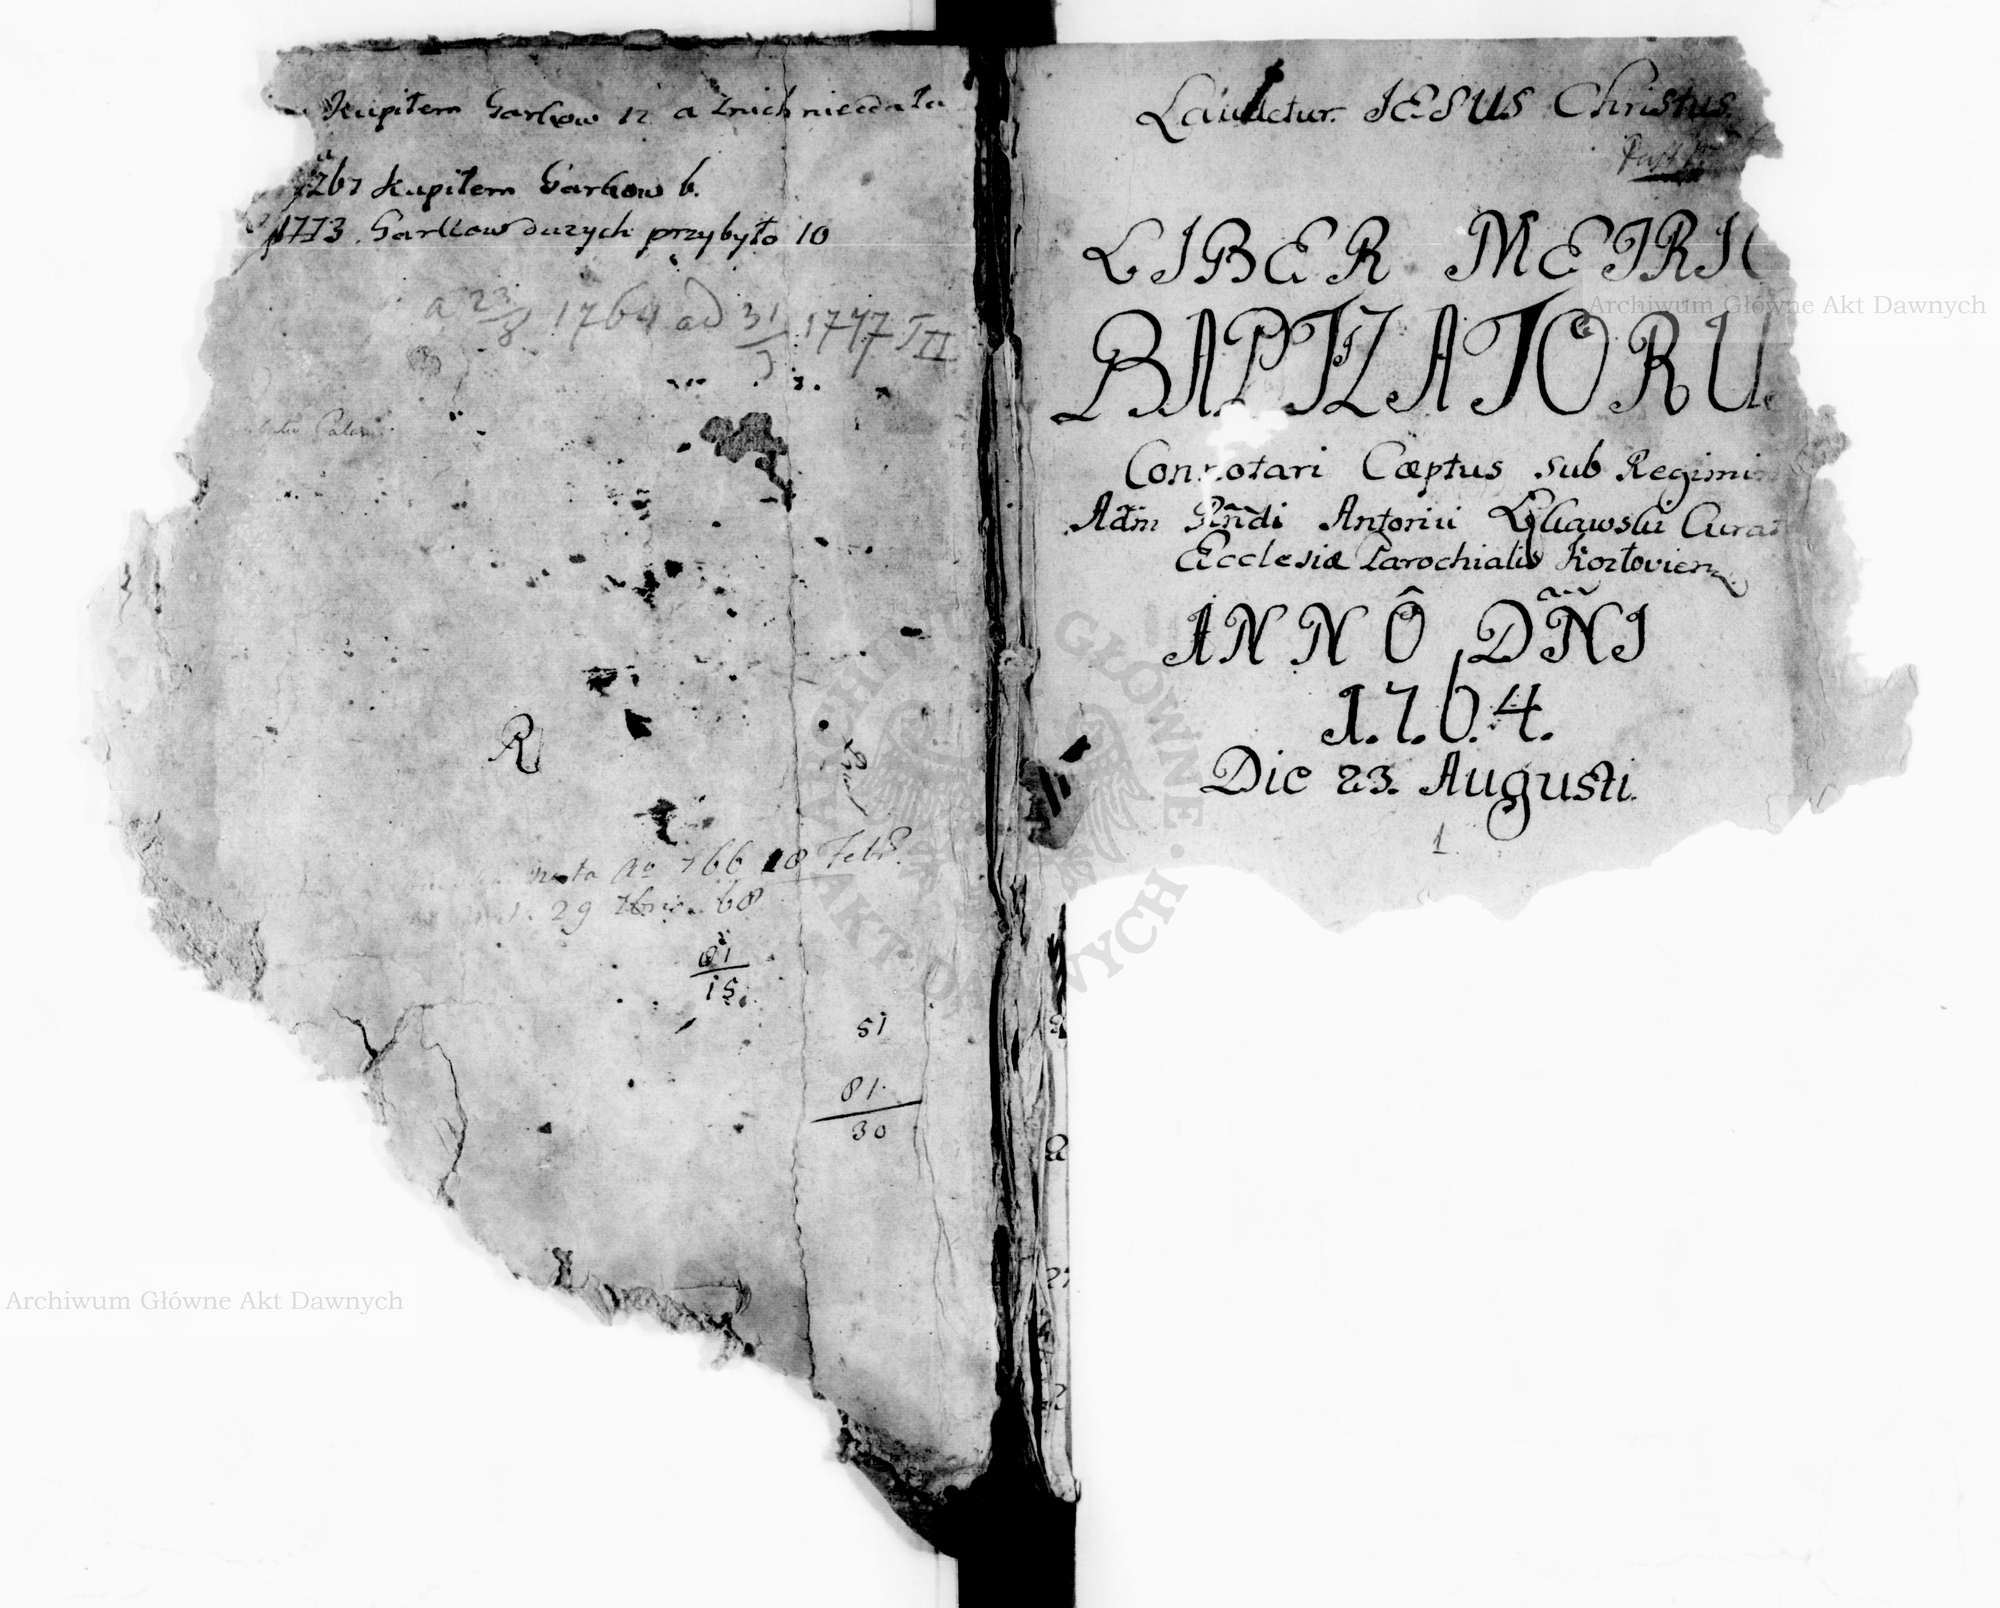 Kupiłem Garkow 12 a znich niedała
1767 Kupiłem Garkow 6.
1773. Garkow duzych przybyło 10
a 23/8 1764 ad 31/ 1777 TII
R
nata Ao 766 18 Febr.
29 7bris 68
81
15
51
81
30
Laudetur JESUS Christus.
LIBER METRI
BAPTIZATORU
Connotari Cæptus sub Regimi
Adm Rñdi Antonii Curat
Ecclesiæ Parochialis Kozłovien
ANNÔ DÑNI
1.7.6.4.
Die 23. Augusti.
1
Archiwum Główne Akt Dawnych
Archiwum Główne Akt Dawnych
ARCHIWUM GŁÓWNE AKT DAWNYCH